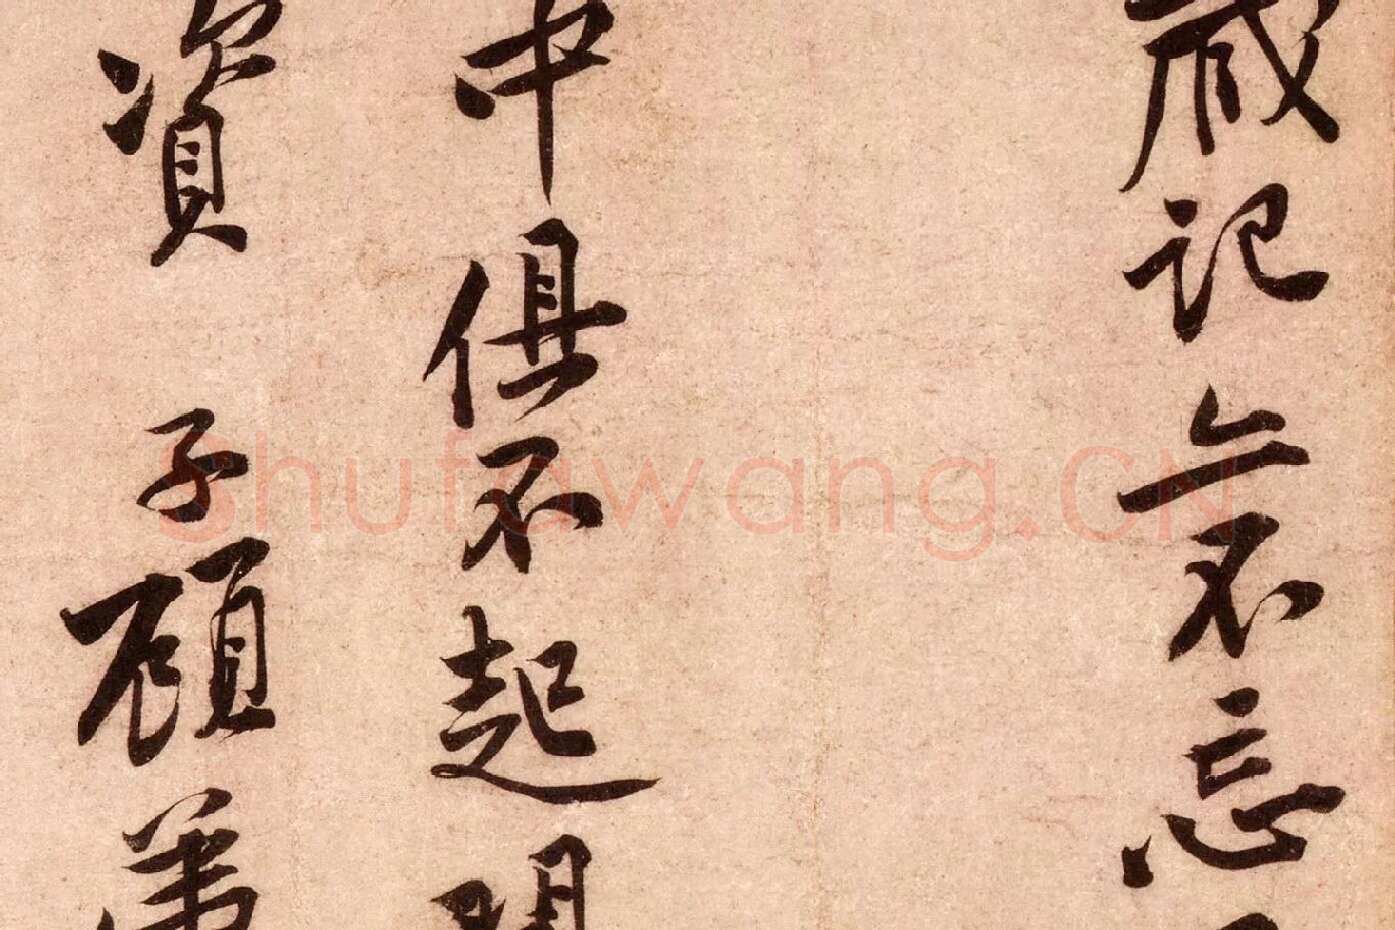 記不忘
中俱不起
資子顧弟
Shufawang.CN